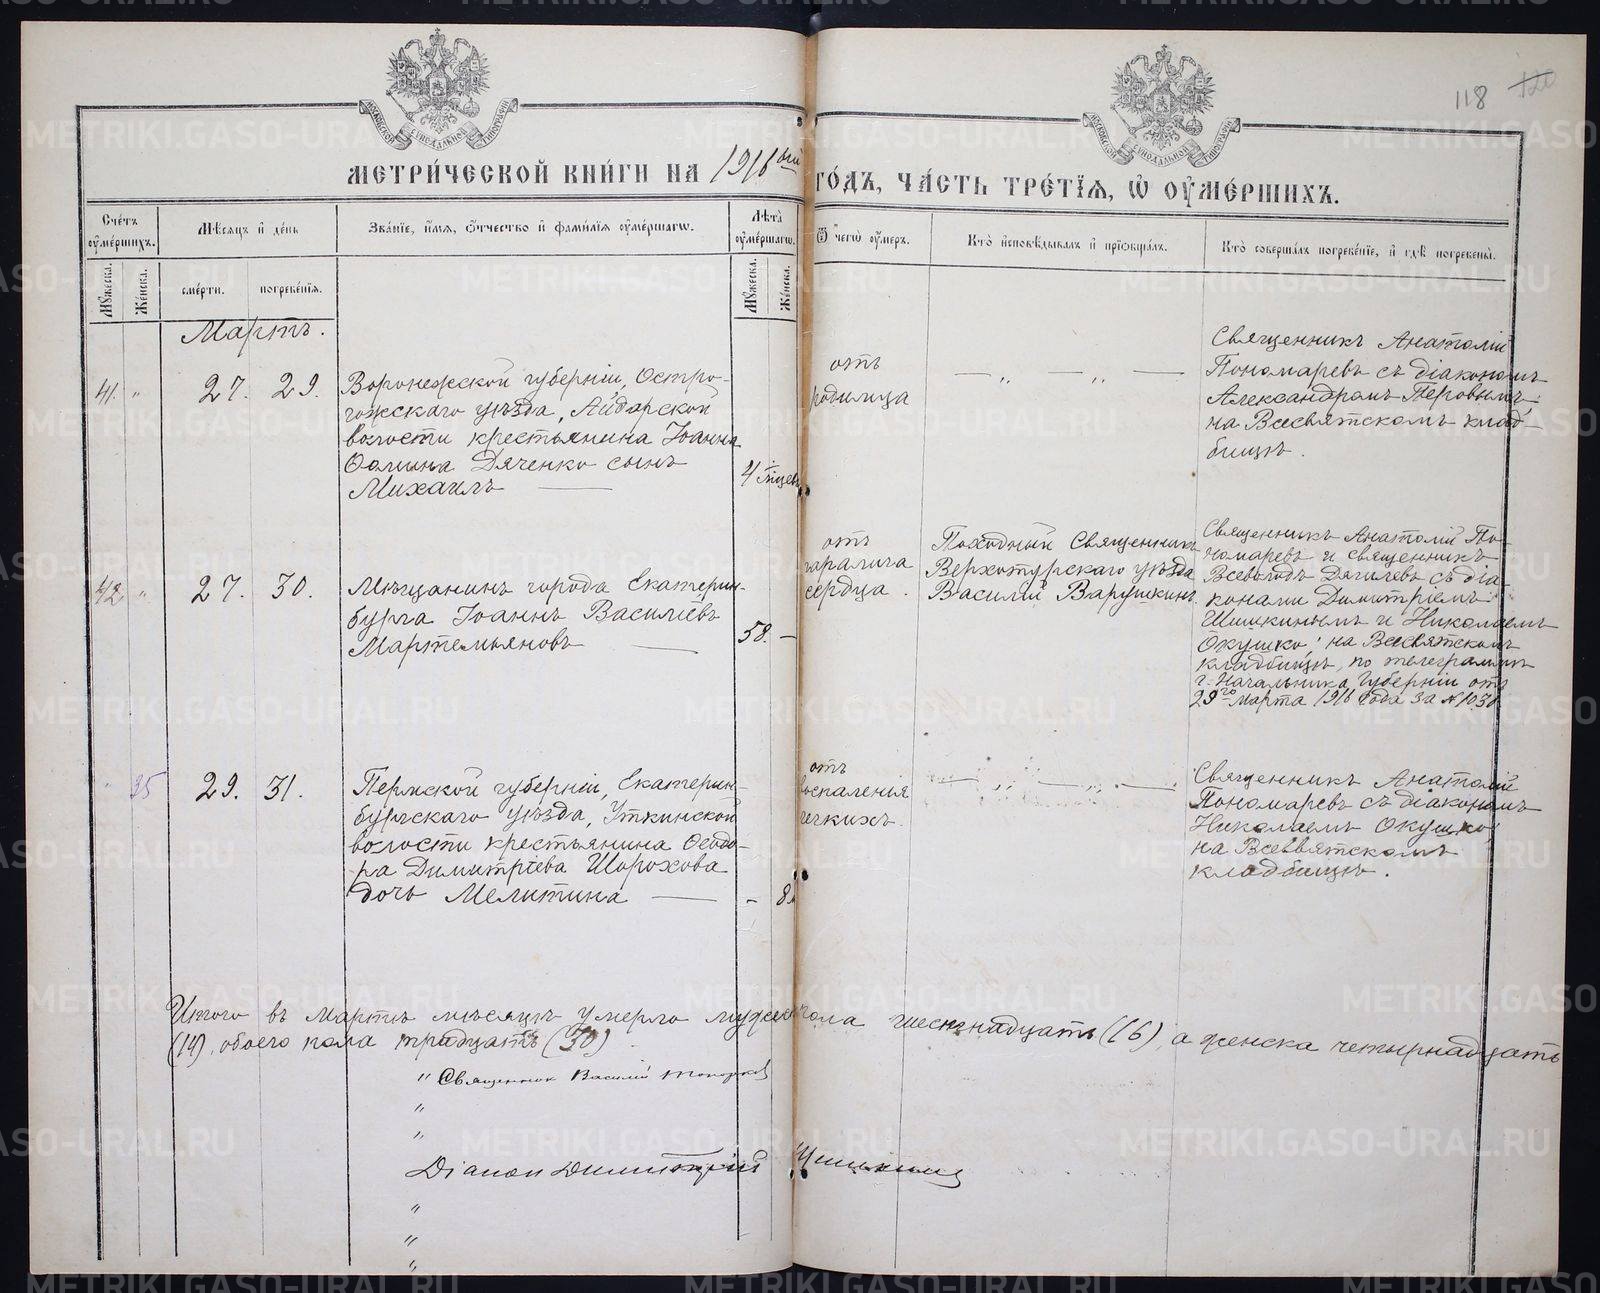 118 120
МОСКОВСКОЙ СѴНОДАЛЬНОЙ ТИПОГРАФІИ
МОСКОВСКОЙ СѴНОДАЛЬНОЙ ТИПОГРАФІИ
МЕТРИ́ЧЕСКОЙ КНИ́ГИ НА 1916ый ГО́ДЪ, ЧА́СТЬ ТРЕ́ТІѦ, Ѡ ОУ҆МЕ́РШИХЪ.
Сче́тъ оу҆ме́ршихъ.
Мѣ́сяцъ и҆ де́нь
Зва́нїе, и҆́мя, ѻ҆́тчество и҆ фами́лїя оу҆ме́ршагѡ.
Лѣ́та оу҆ме́ршагѡ.
Ѿ чегѡ̀ оу҆́меръ.
Кто̀ и҆сповѣ́дывалъ и҆ прїѡбща́лъ.
Кто̀ соверша́лъ погребе́нїе, и҆ гдѣ̀ погребены̀.
Мꙋ́жеска. Же́нска. сме́рти. погребе́нїя. Мꙋ́жеска. Же́нска.
Мартъ.
41. " 27. 29.
Воронежской губерніи, Остро-
гожскаго уѣзда, Айдарской
волости крестьянина Іоанна
Ѳомина Дяченко сынъ
Михаилъ —
4 мѣсяц
отъ
родимца
— „ — „ —
Священникъ Анатолій
Пономаревъ съ діакономъ
Александромъ Перовымъ
на Всесвятскомъ клад-
бищѣ.
42 " 27. 30.
Мѣщанинъ города Екатерин-
бурга Іоаннъ Василіевъ
Мартемьяновъ —
58. –
отъ
паралича
сердца.
Походный Священникъ
Верхотурскаго уѣзда
Василій Варушкинъ
Священникъ Анатолій По-
номаревъ и священникъ
Всеволодъ Дягилевъ съ діа-
конами Димитріемъ
Шишкинымъ и Николаемъ
Окушко; на Всесвятскомъ
кладбищѣ, по телеграммѣ
г. Начальника Губерніи отъ
29го марта 1916 года за № 1030
" 35 29. 31.
Пермской губерніи, Екатерин-
бургскаго уѣзда, Уткинской
волости крестьянина Ѳеодо-
ра Димитріева Шорохова
дочь Мелитина —
– 8
отъ
воспаленія
легкихъ.
— „ — „ —
Священникъ Анатолій
Пономаревъ съ діакономъ
Николаемъ Окушко,
на Всесвятскомъ
кладбищѣ.
Итого въ Мартѣ мѣсяцѣ умерло мужеска пола шестнадцать (16), а женска четырнадцать
(14), обоего пола тридцать (30).
" Священник Василій
"
"
Діакон Димитрій Шишкинъ
"
"
"
METRIKI.GASO-URAL.RU